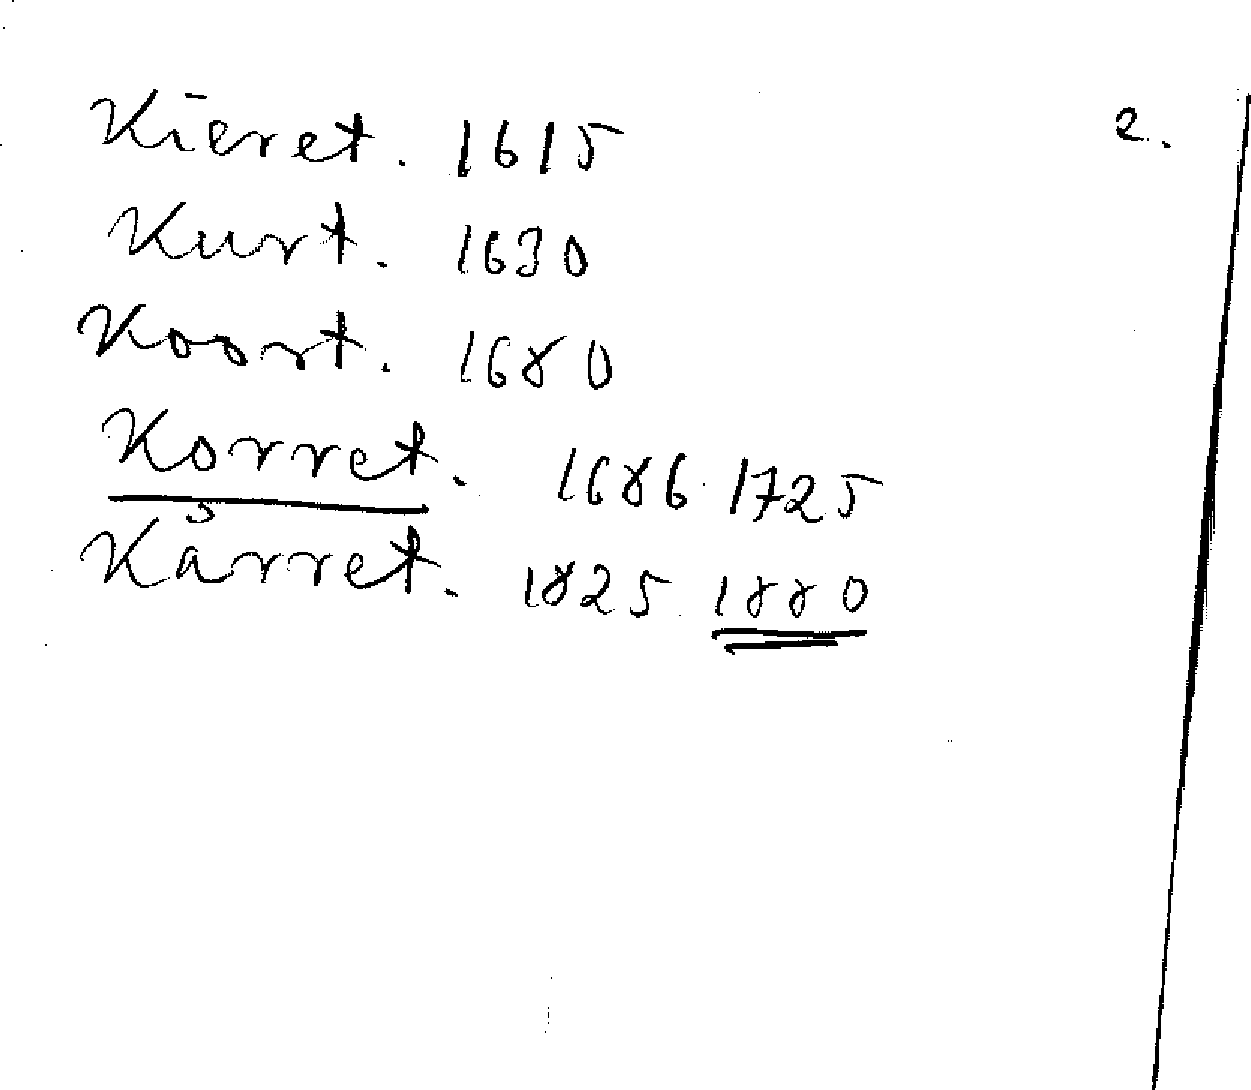 Kieret. 1615 2.
Kurt. 1630
Koort. 1680
Korret. 1686. 1725
Kårret. 1825. 1880